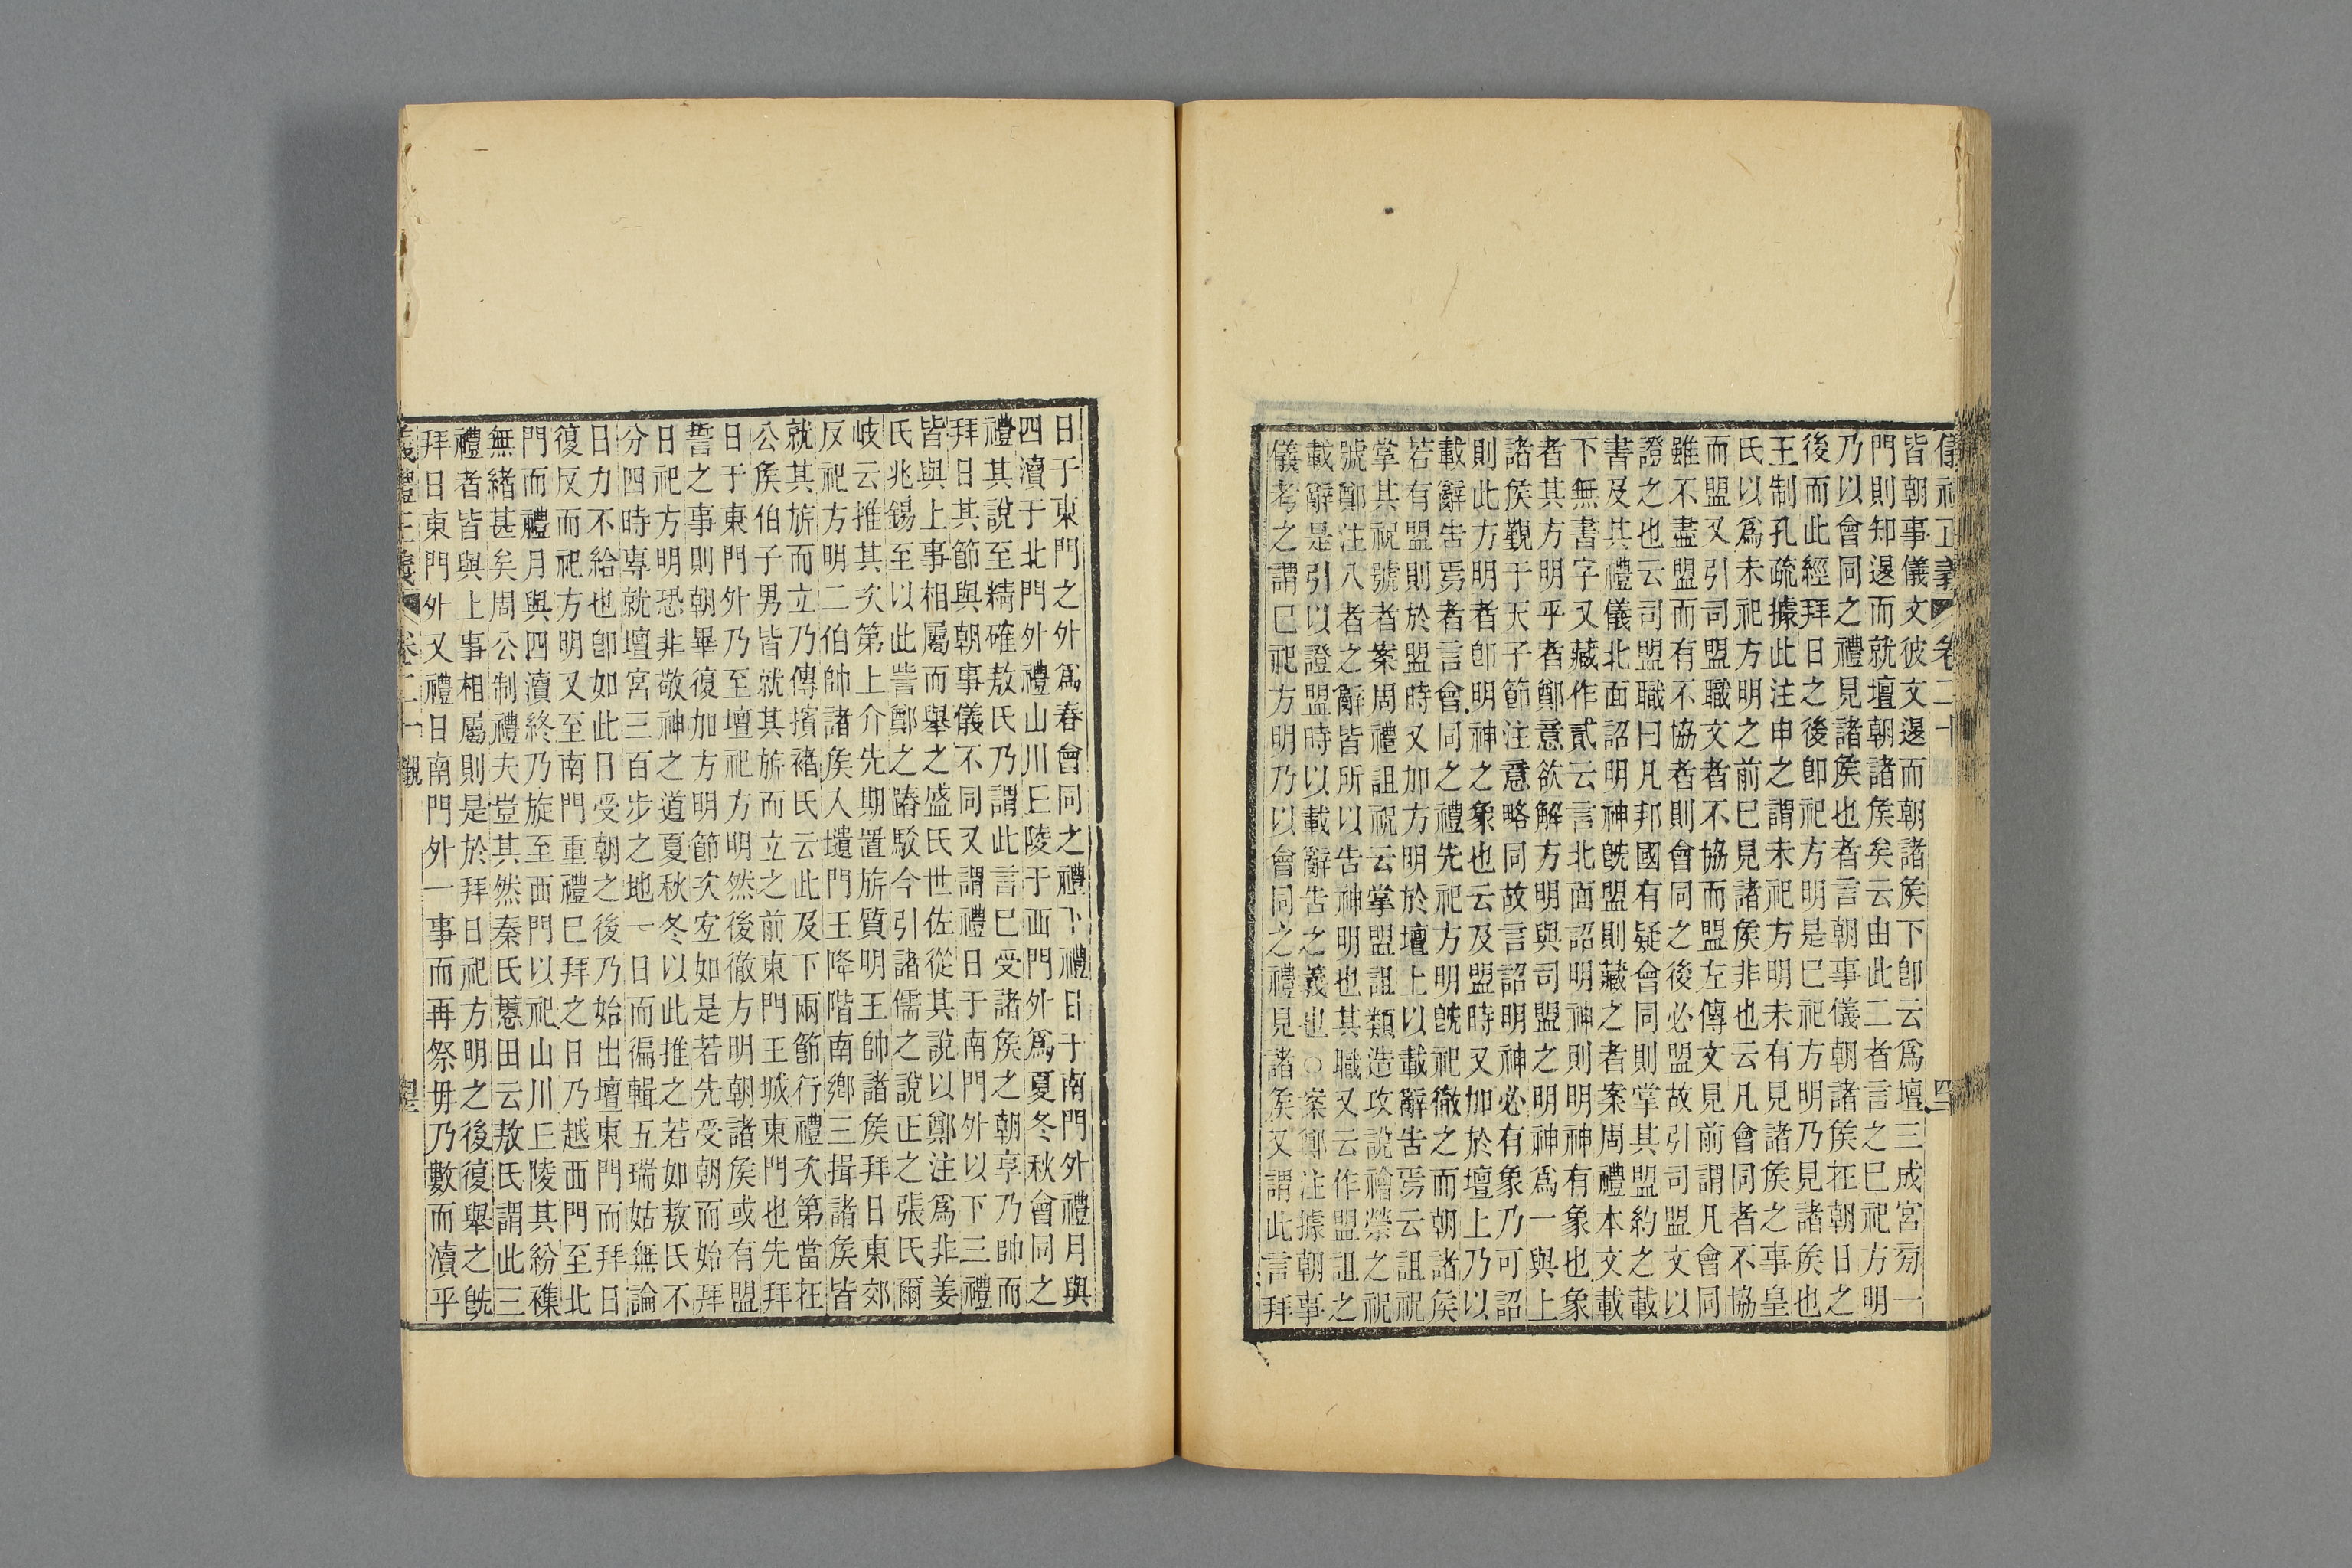 儀禮正義 卷二十
皆朝事儀文彼文退而朝諸矦下卽云爲壇三成宮旁一
門則知退而就壇朝諸矦矣云由此二者言之巳祀方明
乃以會同之禮見諸矦也者言朝事儀朝諸矦在朝日之
後而此經拜日之後卽祀方明是巳祀方明乃見諸矦也
王制孔疏據此注申之謂未祀方明未有見諸矦之事皇
氏以爲未祀方明之前巳見諸矦非也云凡會同者不協
而盟又引司盟職文者不協而盟左傳文見前謂凡會同
雖不盡盟而有不協者則會同之後必盟故引司盟文以
證之也云司盟職曰凡邦國有疑會同則掌其盟約之載
書及其禮儀北面詔明神旣盟則藏之者案周禮本文載
下無書字又藏作貳云言北面詔明神則明神有象也象
者其方明乎者鄭意欲解方明與司盟之明神爲一與上
諸矦覲于天子節注意略同故言詔明神必有象乃可詔
則此方明者卽明神之象也云及盟時又加於壇上乃以
載辭告焉者言會同之禮先祀方明旣祀徹之而朝諸矦
若有盟則於盟時又加方明於壇上以載辭告焉云詛祝
掌其祝號者案周禮詛祝云掌盟詛類造攻說禬禜之祝
號鄭注八者之辭皆所以告神明也其職又云作盟詛之
載辭是引以證盟時以載辭告之義也○案鄭注據朝事
儀考之謂巳祀方明乃以會同之禮見諸矦又謂此言拜
日于東門之外爲春會同之禮下禮日于南門外禮月與
四瀆于北門外禮山川丘陵于西門外爲夏冬秋會同之
禮其說至精確敖氏乃謂此言巳受諸矦之朝享乃帥而
拜日其節與朝事儀不同又謂禮日于南門外以下三禮
皆與上事相屬而舉之盛氏世佐從其說以鄭注爲非姜
氏兆錫至以此訾鄭之踳駁今引諸儒之說正之張氏爾
岐云推其次第上介先期置旂質明王帥諸矦拜日東郊
反祀方明二伯帥諸矦入壝門王降階南鄉三揖諸矦皆
就其旂而立乃傳擯褚氏云此及下兩節行禮次第當在
公矦伯子男皆就其旂而立之前東門王城東門也先拜
日于東門外乃至壇祀方明然後徹方明朝諸矦或有盟
誓之事則朝畢復加方明節次宜如是若先受朝而始拜
日祀方明恐非敬神之道夏秋冬以此推之若如敖氏不
分四時專就壇宮三百步之地一日而徧輯五瑞姑無論
日力不給也卽如此日受朝之後乃始出壇東門而拜日
復反而祀方明又至南門重禮巳拜之日乃越西門至北
門而禮月與四瀆終乃旋至西門以祀山川丘陵其紛穕
無緒甚矣周公制禮夫豈其然秦氏蕙田云敖氏謂此三
禮者皆與上事相屬則是於拜日祀方明之後復舉之旣
拜日東門外又禮日南門外一事而再祭毋乃數而瀆乎
儀禮正義 卷二十 覲